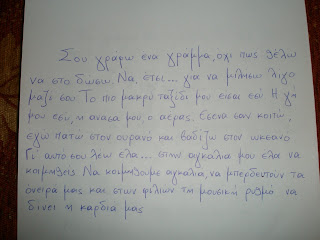 Σου γράφω ενα γράμμα, οχι πως θέλω
να στο δωσω. Να, έτσι... για να μιλησω λιγο
μαζί σου Το πιο μακρύ ταξίδι μου εισαι εσυ Η γη
μου εσυ, η ανασα μου, ο αερας. Εσενα σαν κοιτώ,
εγω πατω στον ουρανό και βαδιζω στον ωκεανο
Γι αυτό σου λεω έλα... στην αγκαλια μου ελα να
κοιμηθεις Να κοιμηθουμε αγκαλια, να μπερδευτούν τα
ονειρα μας και στων φιλιων τη μουσικη ρυθμό να
δινει η καρδια μας